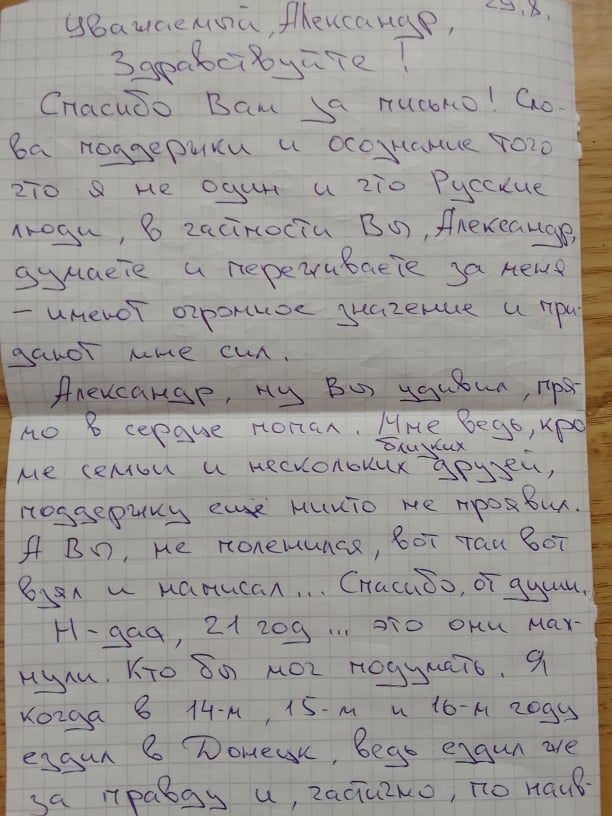 29.8.
Уважаемый, Александр,
Здравствуйте!
Спасибо Вам за письмо! Сло-
ва поддержки и осознание того
что я не один и что Русские
люди, в частности Вы, Александр,
думаете и переживаете за меня
– имеют огромное значение и при-
дают мне сил.
Александр, ну Вы удивил, пря-
мо в сердце попал. Мне ведь, кро
близких
ме семьи и нескольких друзей,
поддержку ещё никто не проявил.
А Вы, не поленился, вот так вот
взял и написал... Спасибо, от души.
Н-даа, 21 год... это они мах-
нули. Кто бы мог подумать. Я
когда в 14-м, 15-м и 16-м году
ездил в Донецк, ведь ездил же
за правду и, частично, по наив-